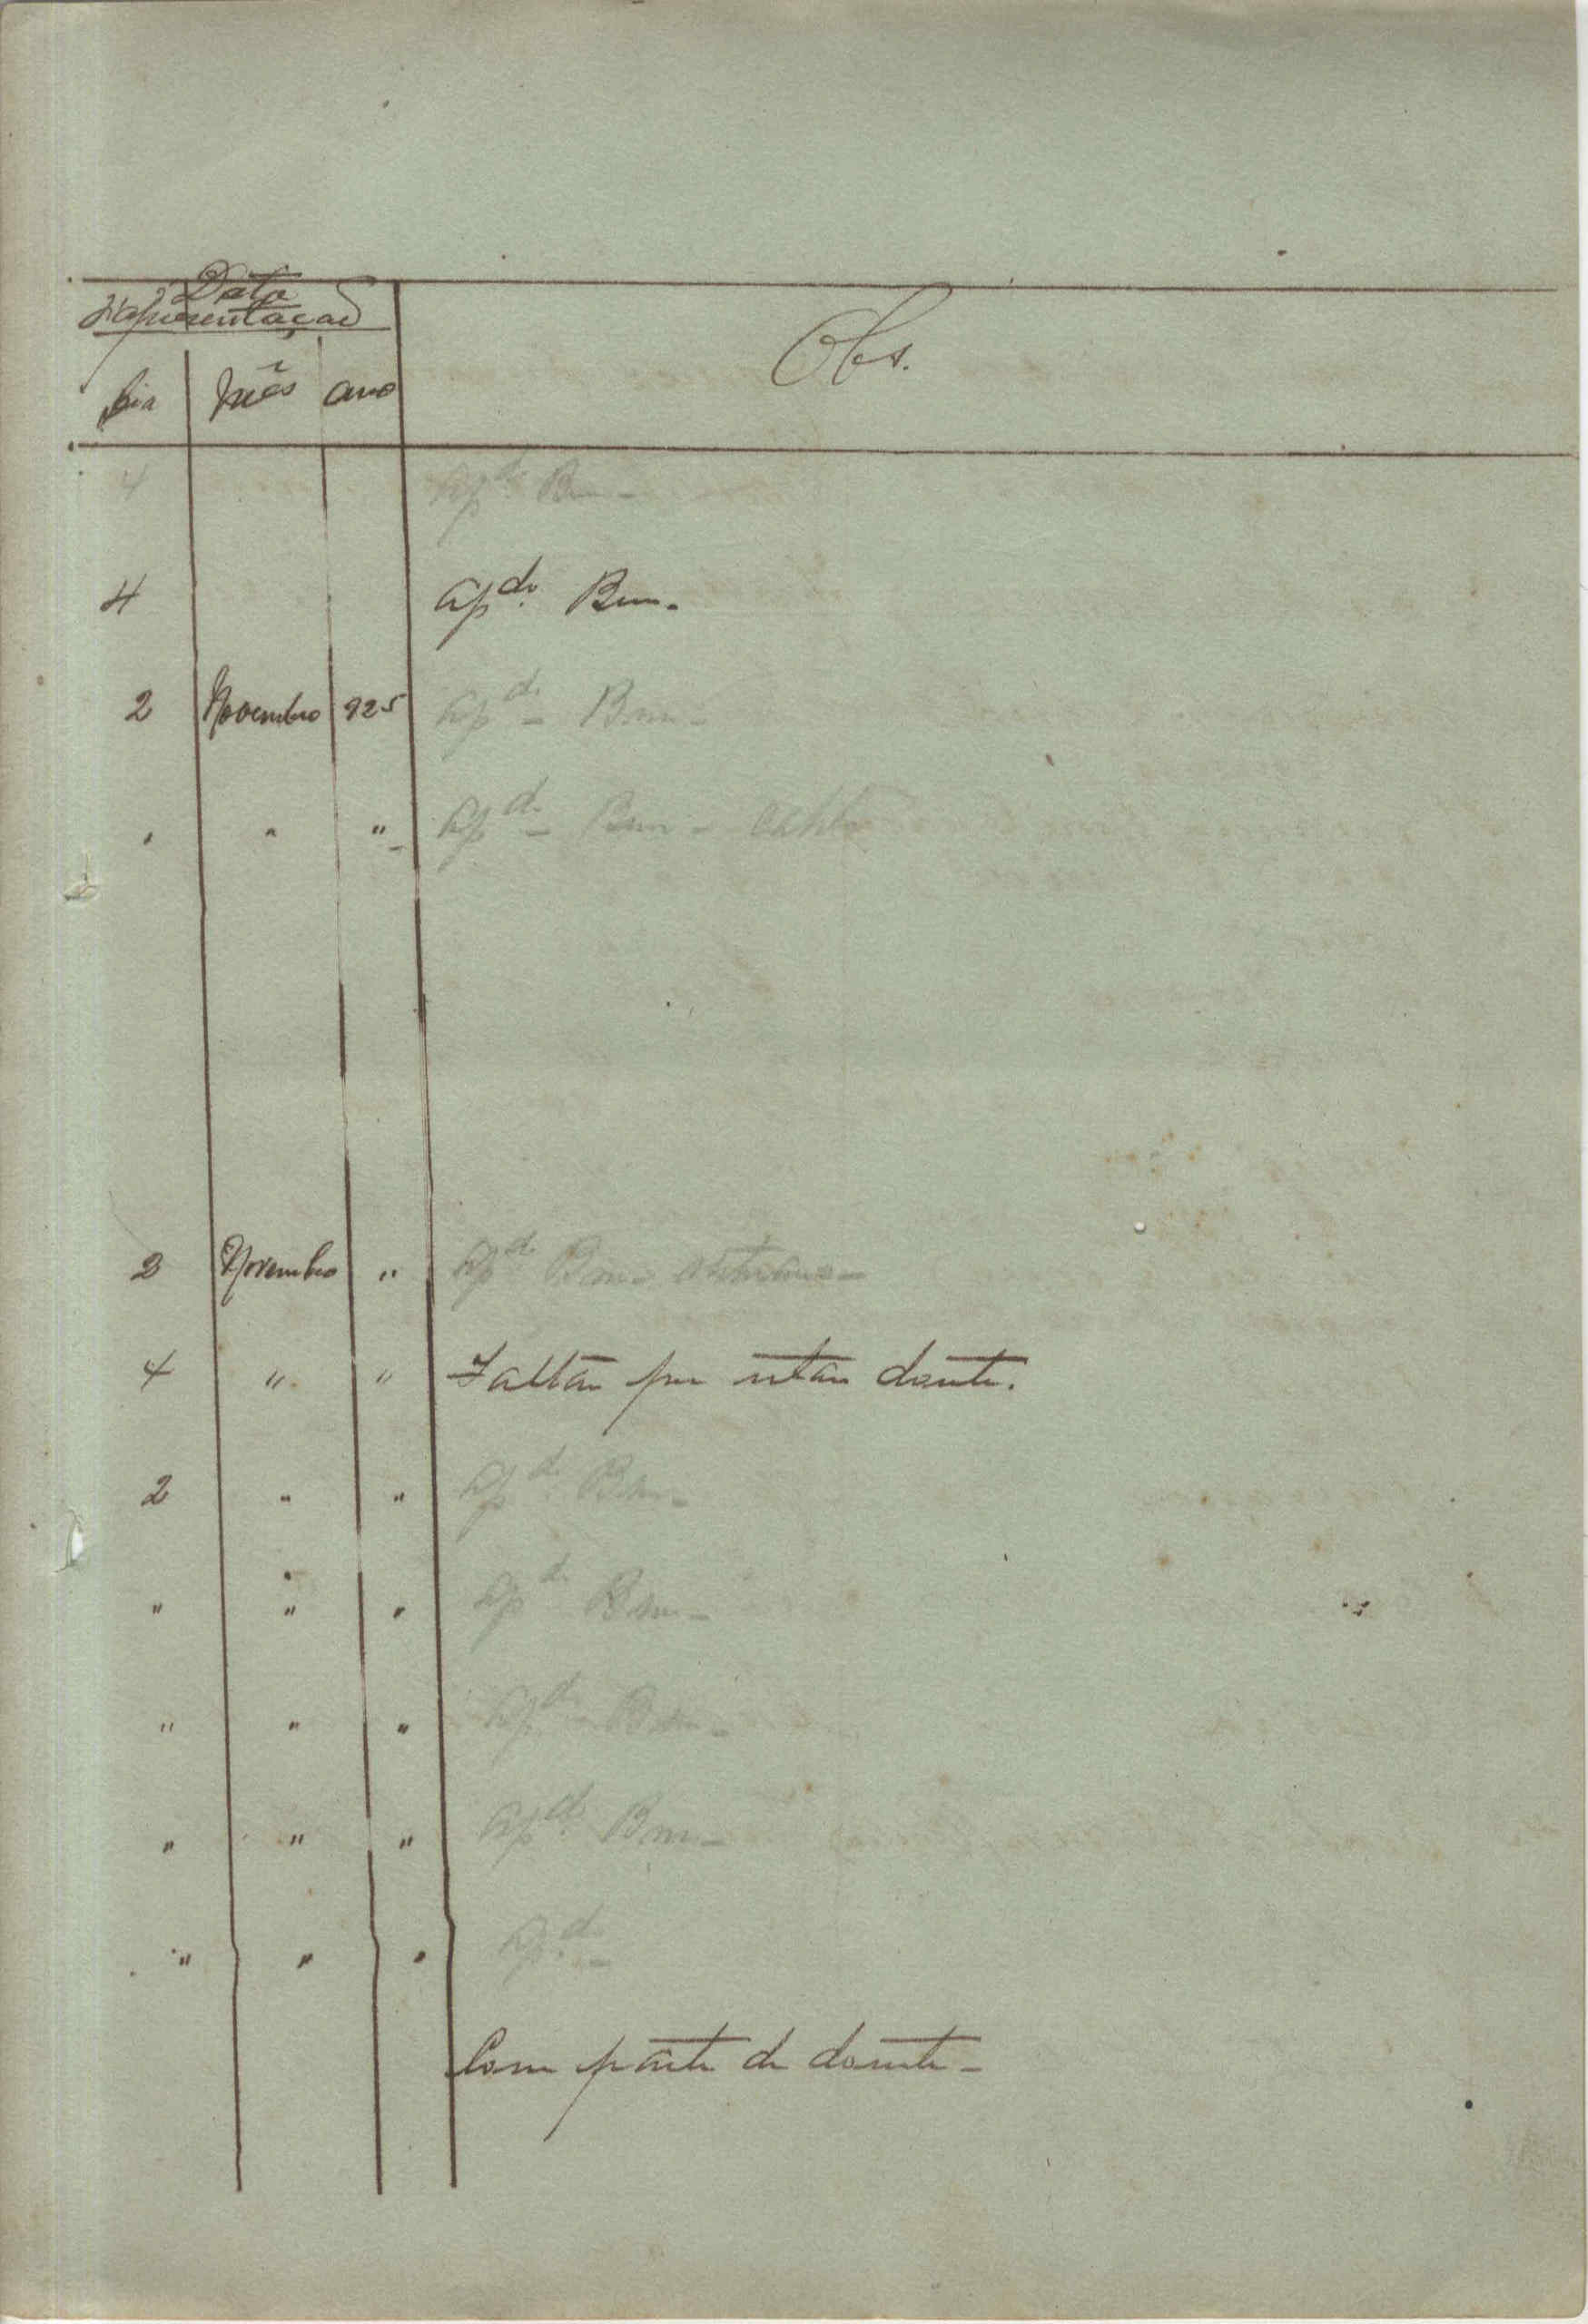 Data
d'apresentação
dia mês ano Obs.
4 Apdo Bom -
4 Apdo. Bom -
2 Novembro 925 Apdo - Bom -
" " " Apdo - Bom -
2 Novembro " Apdo Bom
4 " " Faltou por estar doente.
2 " " Apdo. Bom -
" " " Apdo Bom -
" " " Apdo - Bom -
" " " Apdo. Bom -
" " " Apdo -
Com parte de doente -